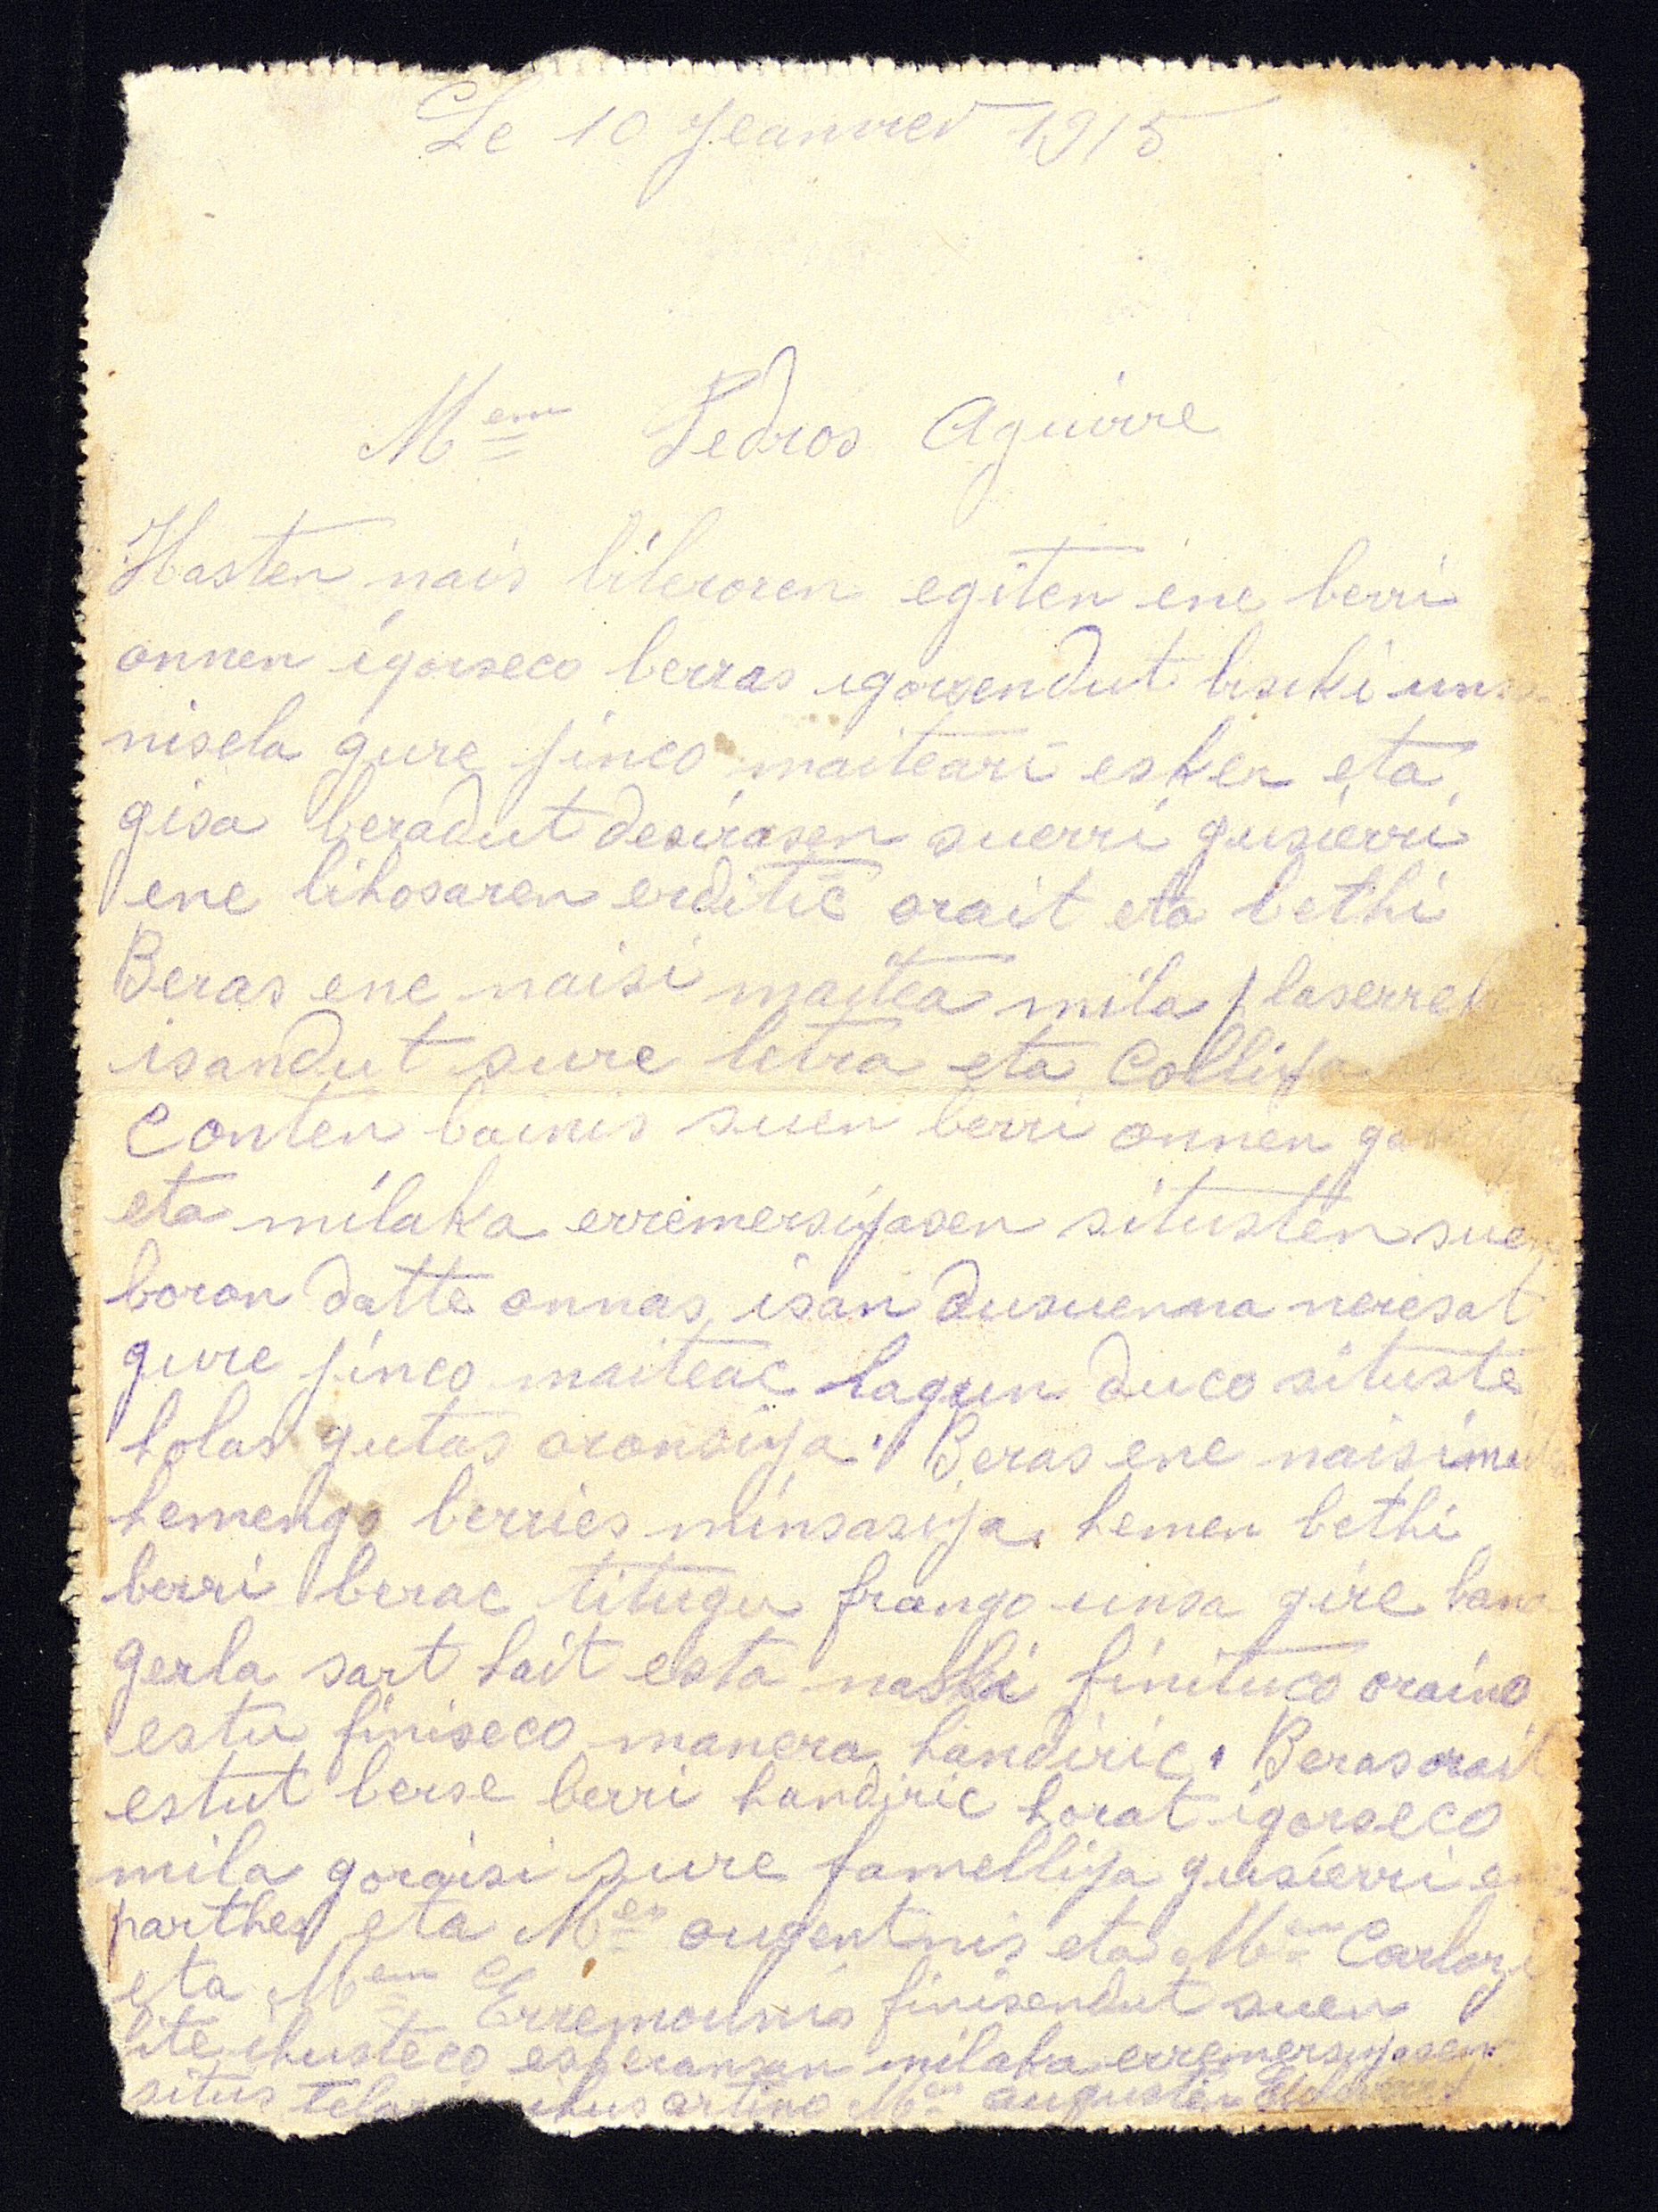 Le 10 Jeanvier 1915
Mem Pedros Aguirre
Hasten nais literoren egiten ene berri
onnen igorseco berras igorsendut biski unsa
nisela gure jinco maiteari esker eta
gisa beradut desirasen suerri gusierri
ene bihosaren erditic orait eta bethi
Beras ene naisi maitea mila plaserreki
isandut sure letra eta
conten bainis suen berri onnen
eta milaka erremersijasen situsten suen
boron datte onnas isan dusuenna neresat
gure jinco maiteac lagun duco situste
holas gutas oronsija. Beras ene naisi
hemengo berries minsasija. hemen bethi
berri berac titugu frango unsa gire bana
gerla sart hait esta naski finituco oraino
estu finiseco manera handiric. Beras orait
estut berse berri handiric horat igorseco
mila goraisi sure famellija gusierri ene
parthes eta Men augentnis eta Mem Carlosi
eta Mem Erremounis finisendut suen
bite ikusteco esperansan milaka erremersijasen
situs ikus artino Men augustin